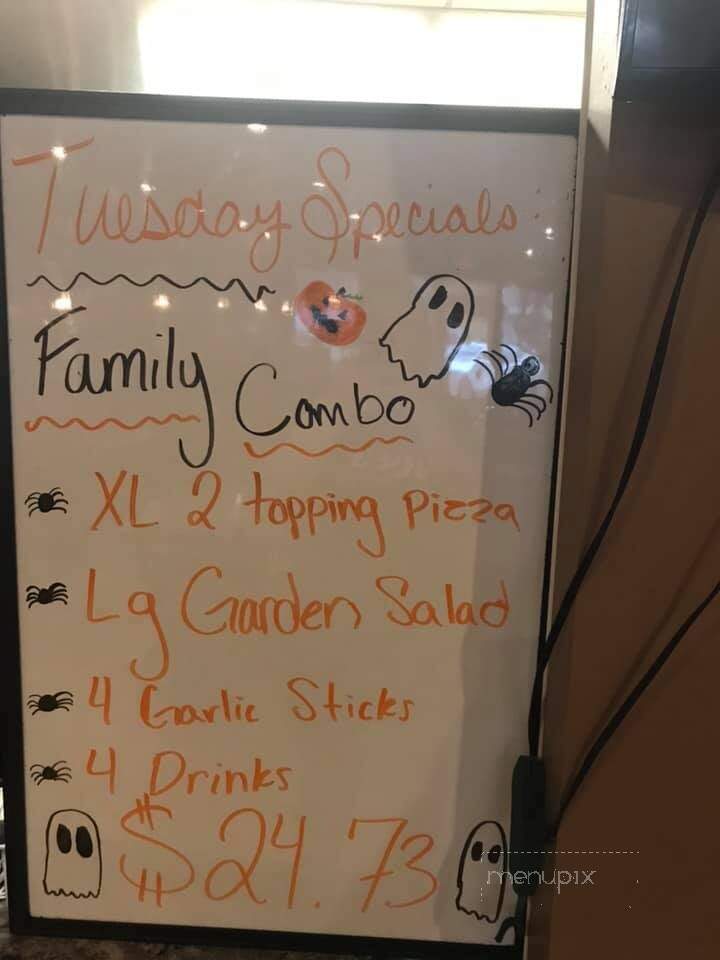 Tuesday Specials:
Family Combo
XL 2 topping Pizza
Lg Garden Salad
4 Garlic Sticks
4 Drinks
$24.73
menupix